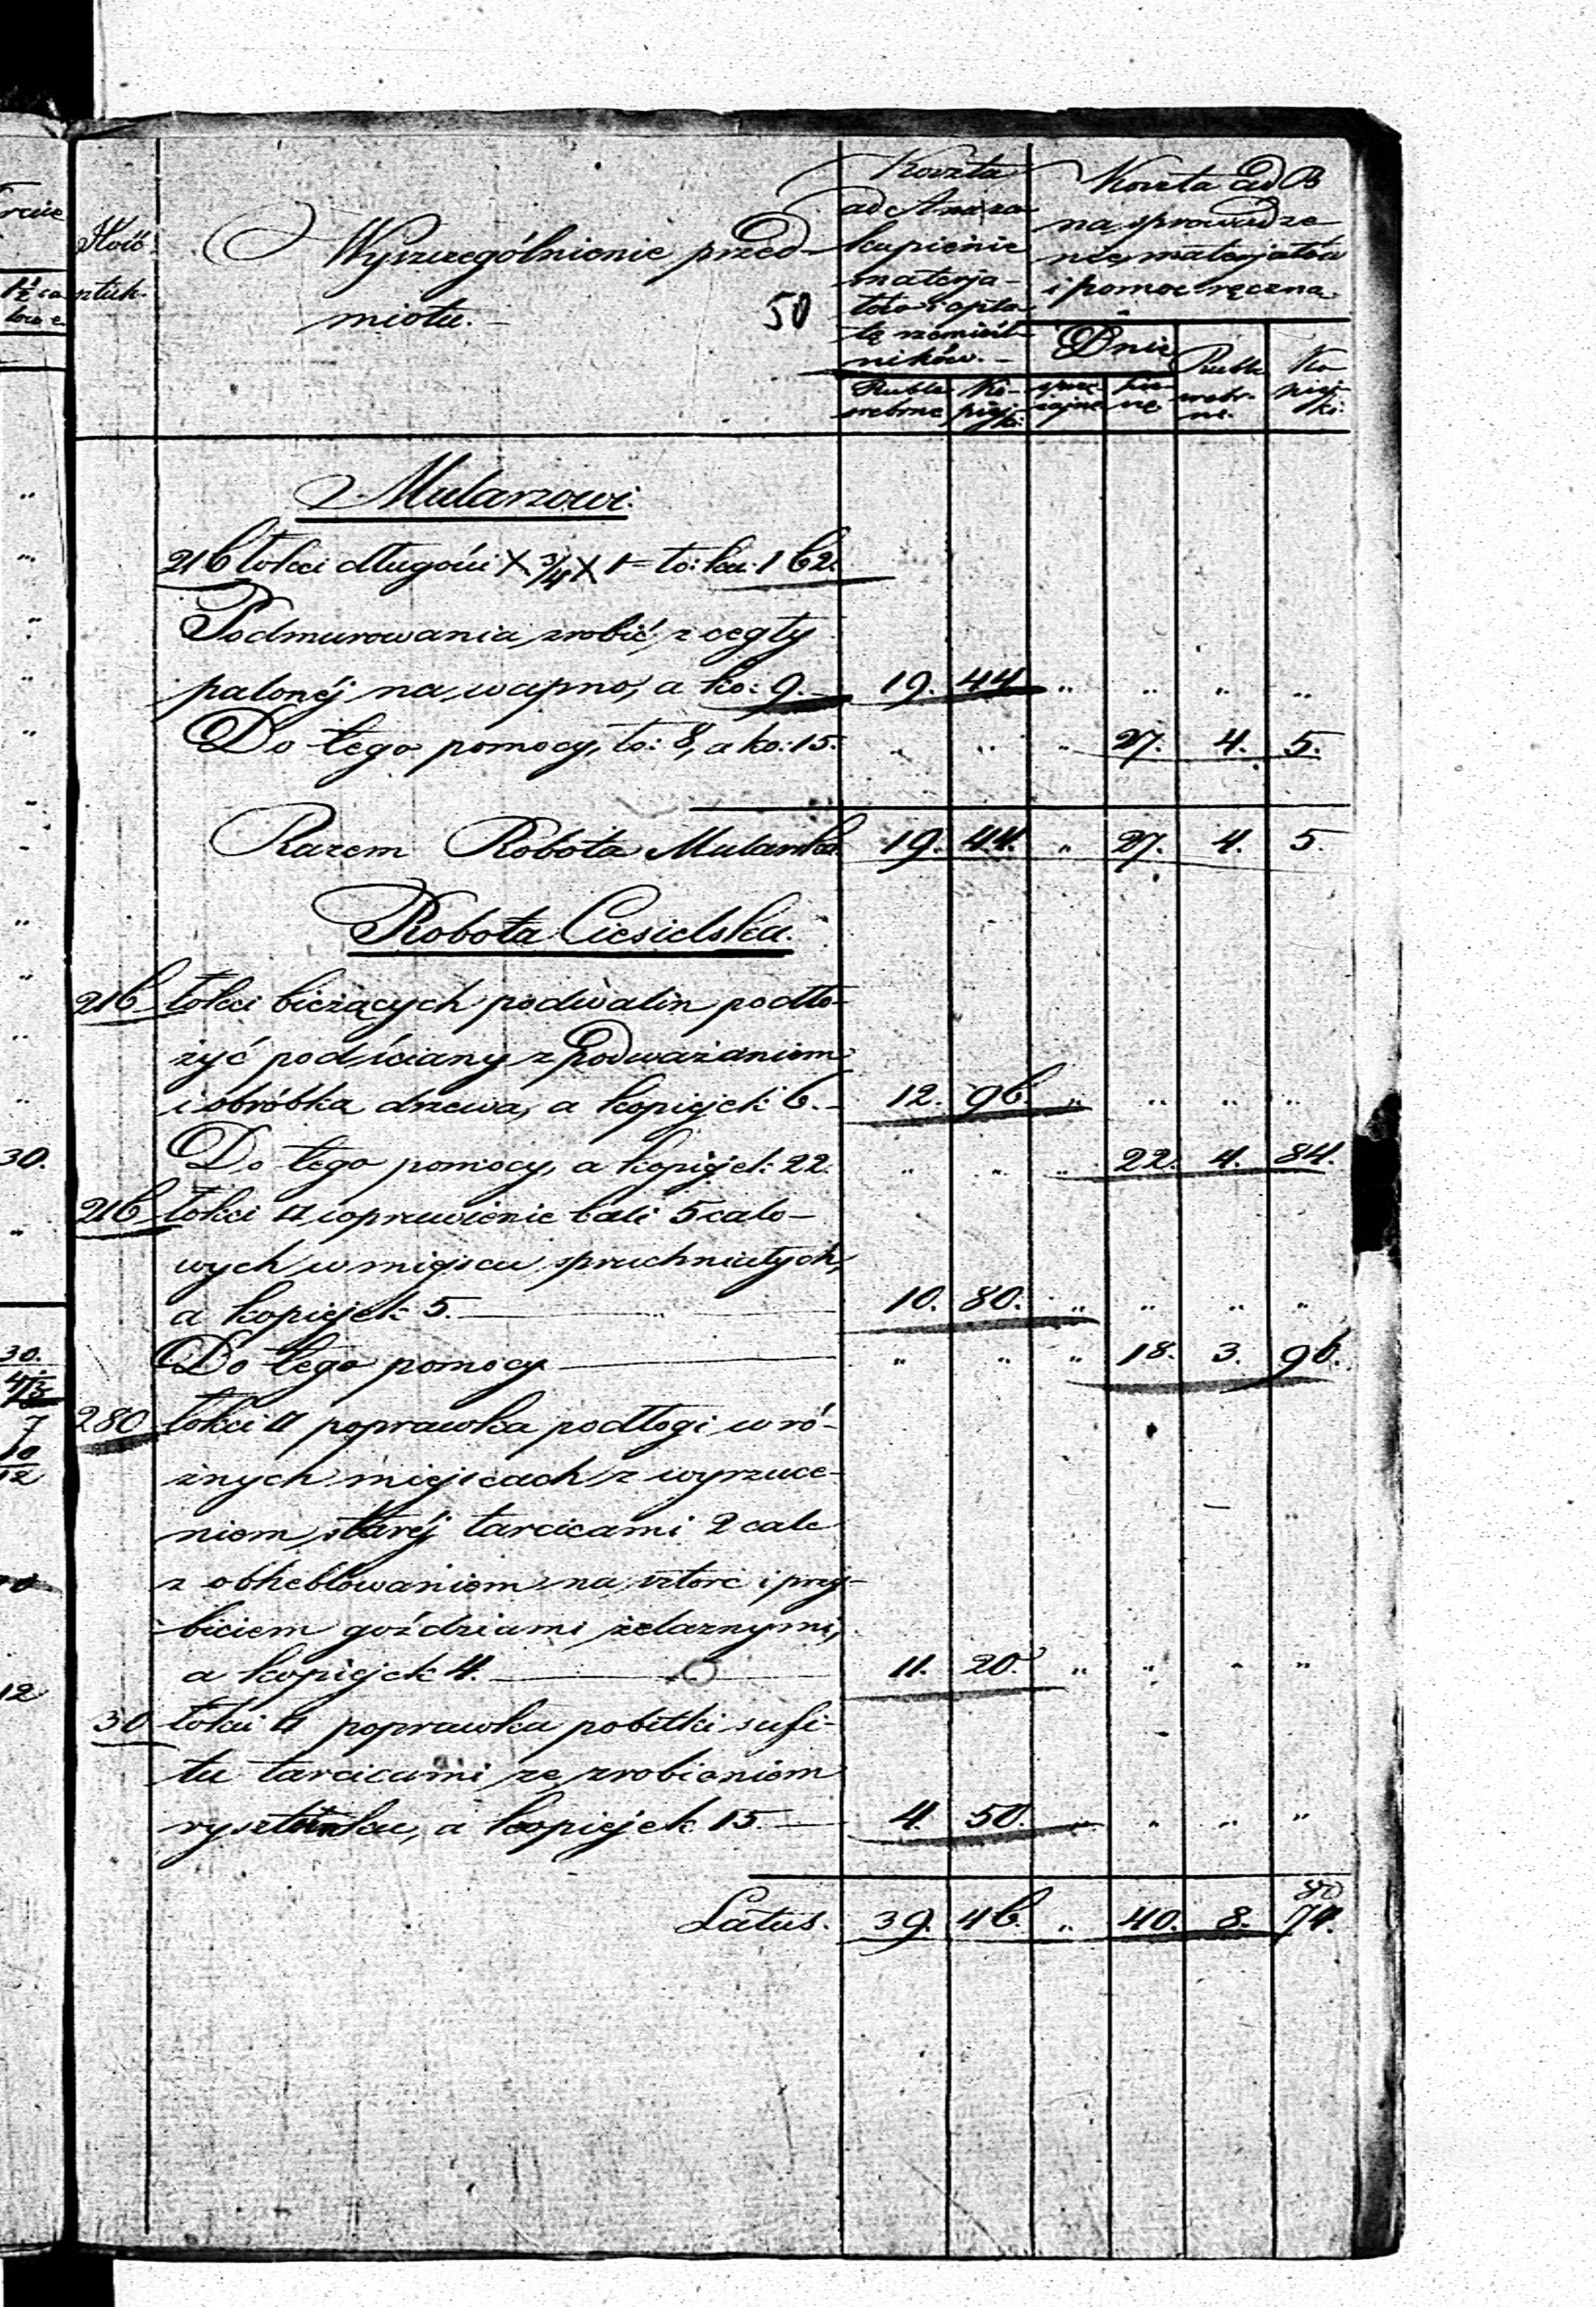 Ilość
sztuk.
Wyszczególnienie przed-
miotu.
50
Koszta
ad A na za
kupienie
materja-
łów i opła
tę rzemieśl
ników.
Ruble
srebrne
Ko-
piej-
ki.
Koszta ad B
na sprowadze
nie materjałów
i pomoc ręczna
Dnie
Ruble
srebr-
ne.
Ko
piej-
ki.
sprzę-
żajne
pie-
sze
Mularzowi.
216 łokci długości X 3/4 X 1 = ło: ku: 162.
Podmurowania, zrobić z cegły
palonéj na wapno, a ko: 9. 19. 44 „ „ „ „
Do tego pomocy, ło: 8, a ko: 15. „ „ „ 27. 4. 5.
Razem Robota Mularska 19. 44. „ 27. 4. 5.
Robota Ciesielska.
216 łokci bieżących podwalin podło-
żyć pod ściany z podważaniem
i obróbka drzewa, a kopiejek 6. 12. 96. „ „ „ „
Do tego pomocy, a kopiejek 22. „ „ „ 22. 4. 84.
216 łokci □ wprawienie bali 5 calo-
wych w miejscu spruchniałych,
a kopiejek 5. 10. 80. „ „ „ „
Do tego pomocy „ „ „ 18. 3. 96.
280 łokci □ poprawka podłogi w ró-
żnych miejscach z wyrzuce-
niem staréj tarcicami 2 cale
z obheblowaniem na sztorc i przy-
biciem goździami żelaznymi,
a kopiejek 4. 11. 20. „ „ „ „
30 łokci □ poprawka pobitki sufi-
tu tarcicami ze zrobieniem
rysztunku, a kopiejek 15. 4. 50. „ „ „ „
80
Latus. 39. 46. „ 40. 8. 74.
30.
30.
7
10
12
12